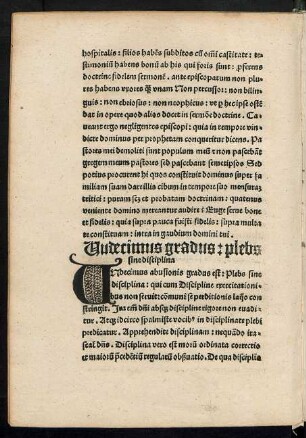 hospitalis: filios habẽs subditos cũ oĩm castitate: te-
stimoniũ habens bonũ ab his qui foris sunt: pferens
doctrinẽ fidelem sermonẽ. ante episcopatum non plu
res habens vxores ꝙ vnam Non percussor: non bilin
guis: non ebriosus: non neophitus: vt p hec ipse ostẽ
dat in opere quod alios docet in sermõe doctrine. Ca
ueant ergo negligentes episcopi: quia in tempore vin
dicte dominus per prophetam conqueritur dicens. Pa
stores mei demoliti sunt populum meũ ⁊ non pascebãt
gregem meum pastores sed pascebant semetipsos Sed
potius procurent hi quos constituit dominus super fa
miliam suam dare illis cibum in tempore suo mensurã
tritici: puram scz ⁊ probatam doctrinam: quatenus
veniente domino mereantur audire: Euge serue bone
et fidelis: quia supra pauca fuisti fidelis: supra multa
te constituam: intra in gaudium domini tui.
Undecimus gradus: plebs
sine disciplina
Undecimus abusionis gradus est: Plebs sine
disciplina: qui cum Discipline exercitationi-
bus non seruit: cõmuni se perditionis laq̃o con
stringit. Iram em̃ dñi absq̃ discipline rigore non euad
itur. Atq̃ idcirco spalmiste vocib̃ in disciplinate plebi
predicatur. Apprehendite disciplinam: nequãdo ira-
scat̃ dñs. Disciplina vero est morũ ordinata correctio
et maiorũ p̃cedẽtiũ regularũ obseruatio. De qua disciplia